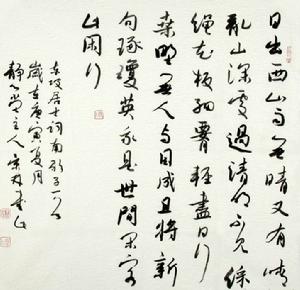 日出西山雨無晴又有晴
亂山深處過清明不見綵
繩花板細腰輕盡日行
桑野無人與目成且將新
句琢瓊英我是世間閑客
此閑行
東坡居士詞南歌子一首
歲在庚寅夏月
堂主人